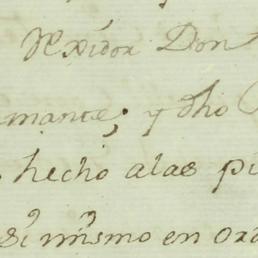 Rexidor Don
mante; y dho
hecho alas pi
si mismo en ora